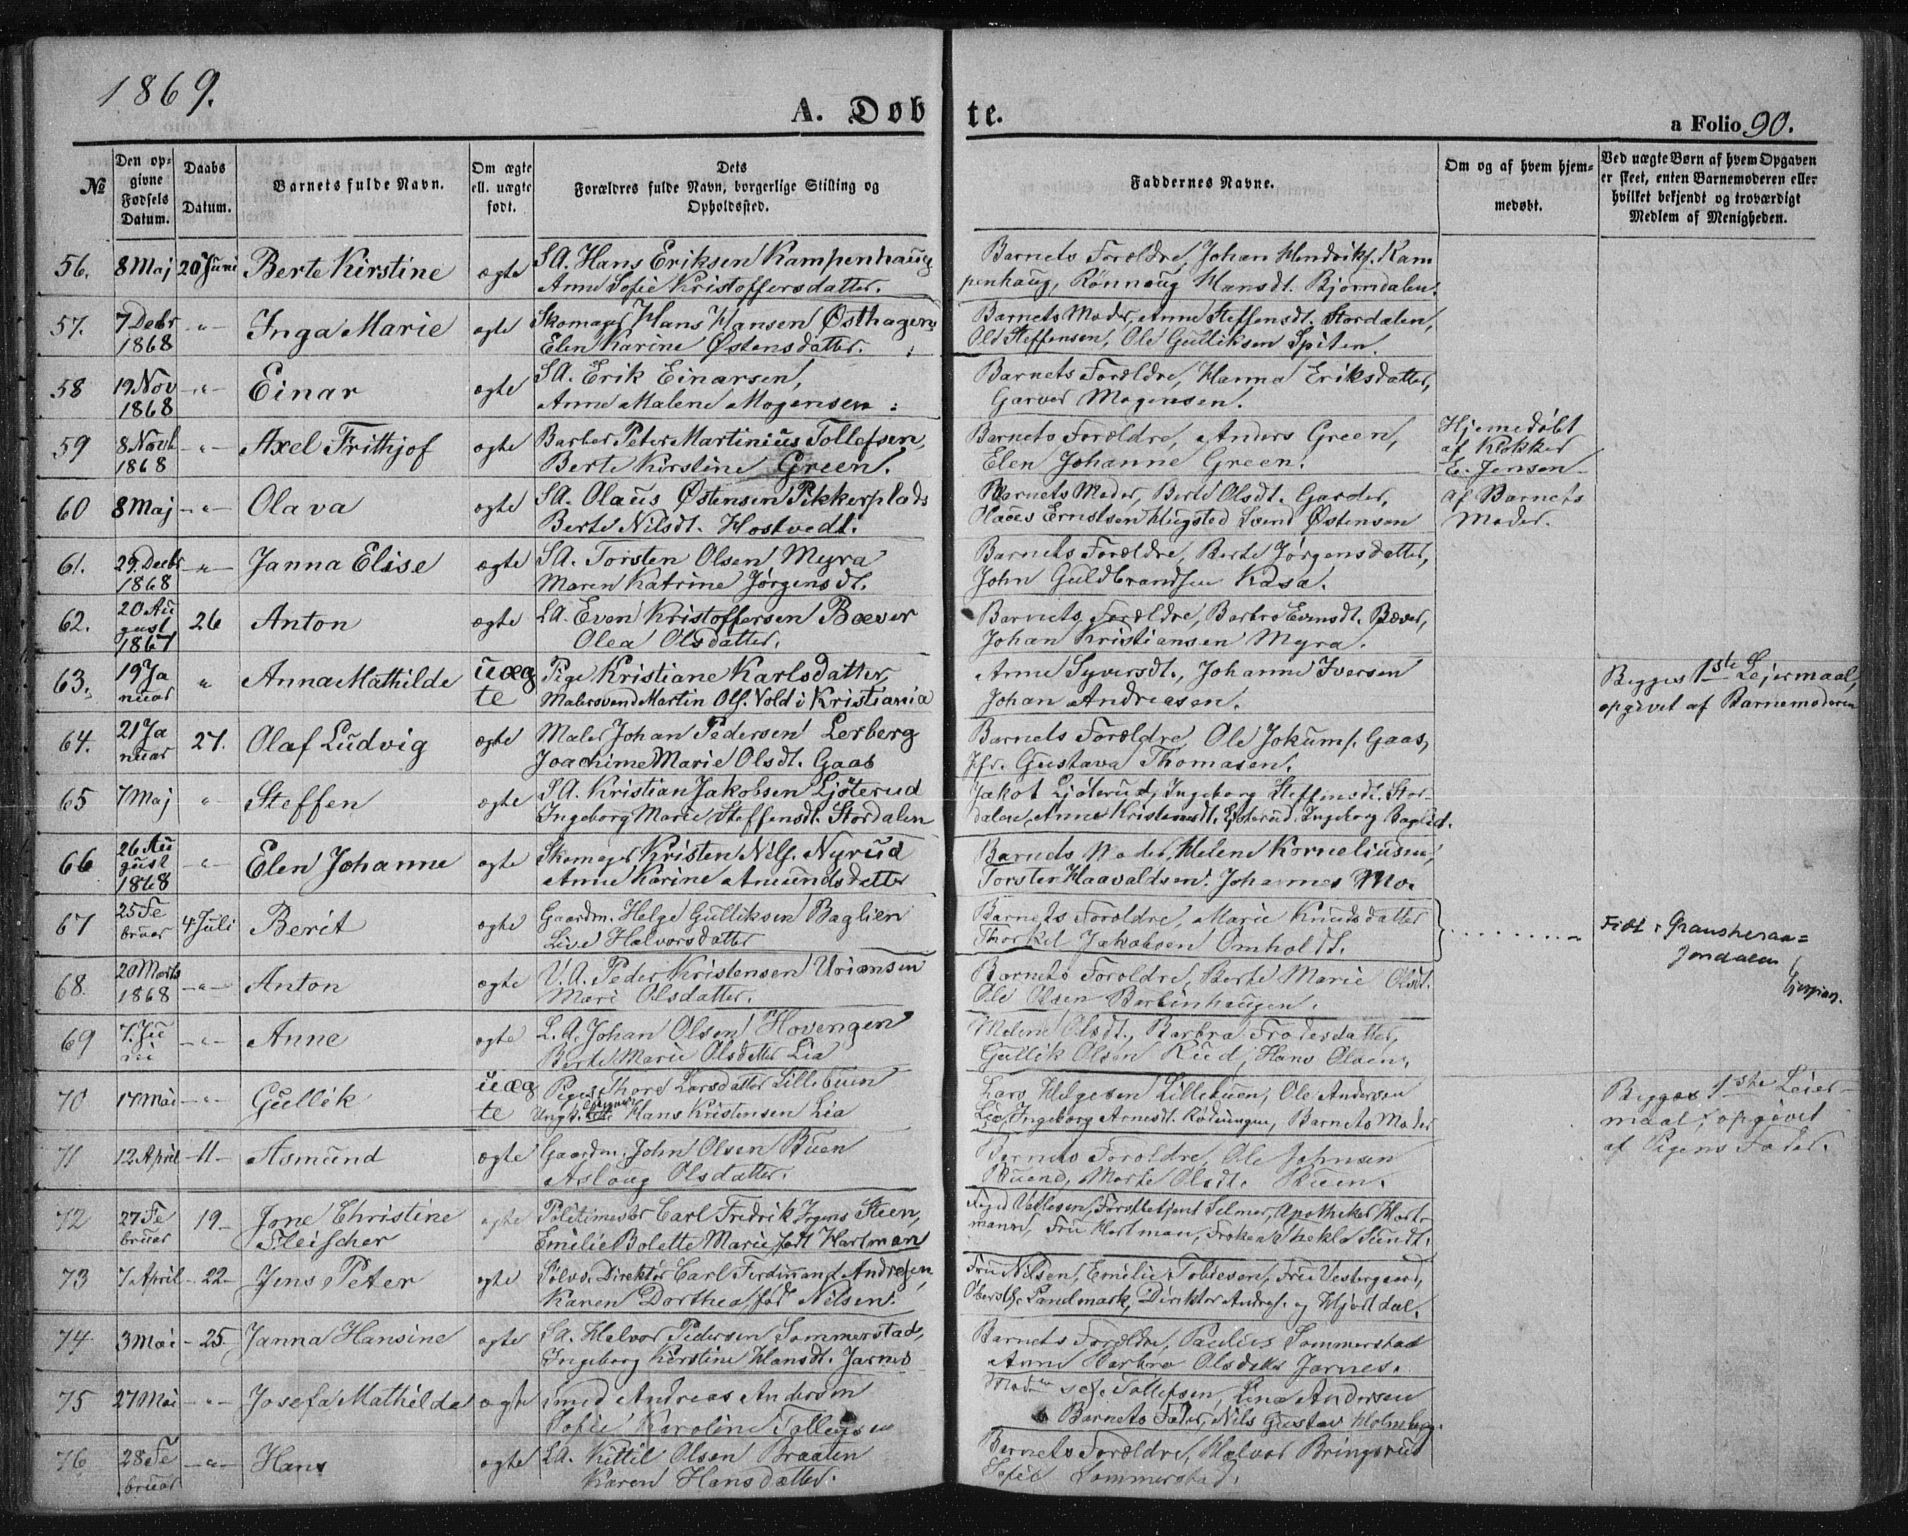 1869.
A. Døbte.
a Folio 90.
№
Den opgivne Fødsels Datum.
Daabs Datum.
Barnets fulde Navn.
Om ægte ell. uægte født.
Dets Forældres fulde Navn, borgerlige Stilling og Opholdssted.
Faddernes Navne.
Om og af hvem hjemmedøbt.
Ved uægte Børn af hvem Opgaven er skeet, enten Barnemoderen eller hvilket bekjendt og troværdigt Medlem af Menigheden.
56. 8 Maj 20 Juni Berte Kirstine ægte SA. Hans Eriksen Kampenhaug
Anne Sofie Kristoffersdatter.
Barnets Forældre, Johan Hendriks. Kam
penhaug, Rönnoug Hansdt. Bjorndalen.
57. 7 Debr 1868 -"- Inga Marie ægte Skomager Hans Hansen Østhagen
Elen Karine Østensdatter.
Barnets Moder, Anne Steffensdt. Stordalen,
Ole Steffensen, Ole Gulliksen Spiten.
58 19 Nov 1868 -"- Einar ægte SA. Erik Einarsen,
Anne Malene Mogensen
Barnets Forældre, Hanna Eriksdatter,
Garver Mogensen.
59 8 Novb 1868 -"- Axel Frithjof ægte Barber Peter Martinius Tollefsen,
Berte Kirstine Green.
Barnets Forældre, Anders Green,
Elen Johanne Green.
Hjemedøbt
af Klokker
E. Jensen
60 8 Maj -"- Olava ægte SA. Olaus Østensen Pikkerplads
Berte Nilsdt. Hostvedt.
Barnets Moder, Berte Olsdt. Garder,
Claus Ernstsen Hugsted Svend Østensen
af Barnets
Moder.
61. 29. Decbr 1868 -"- Janna Elise ægte SA. Torsten Olsen Myra
Maren Katrine Jørgensdt.
Barnets Forældre, Berte Jørgensdatter,
John Guldbrandsen Kasa.
62. 20 August 1867 26 Anton ægte LA. Even Kristoffersen Bæver
Olea Olsdatter.
Barnets Forældre, Barbro Evensdt. Bæver,
Johan Kristiansen Myra.
63. 19 Januar " Anna Mathilde uægte Pige Kristiane Karlsdatter,
Malersvend Martin Ols. Vold i Kristiania
Anne Syversdt., Johanne Iversen
Johan Andreasen.
Begges 1ste Lejermaal,
opgivet af Barnemoderen
64. 21 Januar 27. Olaf Ludvig ægte Maler Johan Pedersen Lerberg
Joachime Marie Olsdt. Gaas
Barnets Forældre, Ole Jokums. Gaas,
Jfr. Gustava Thomasen.
65 7 Maj " Steffen ægte S.A. Kristian Jakobsen Ljøterud
Ingeborg Marie Steffensdt. Stordalen
Jakob Ljøterud, Ingeborg Steffensdt. Stor-
dalen, Anne Kristensdt. Ljøterud, Ingeborg Baglid.
66 26 August 1868 -"- Elen Johanne ægte Skomager Kristen Nils. Nyrud
Anne Karine Amundsdatter
Barnets Moder, Helene Korneliusen,
Torsten Haavaldsen. Johannes Mo.
67 25 Februar 4 Juli Berit ægte Gaardm. Helge Gulliksen Baglien
Live Halvorsdatter
Barnets Forældre, Marie Knudsdatter
Thorkel Jakobsen Omholdt.
Født i Gransherad=
Jondalen
68. 20 Marts 1868 -"- Anton ægte V.A. Peder Kristensen Uriansen
Mari Olsdatter.
Barnets Forældre, Berte Marie Olsdt.
Ole Olsen Berlinhaugen.
69 7. Juni -"- Anne ægte L.A. Johan Olsen Hovengen
Berte Marie Olsdatter Lia
Malene Olsdt., Barbra Frodesdatter,
Gullik Olsen Rud, Hans Olsen,
70 17 Mai -"- Gullik uægte Pige Thore Larsdatter Lillebuen
Ungk. Hans Kristensen Lia
Lars Helgesen Lillebuen, Ole Andersen
Lia, Ingeborg Arnesdt. Rødningen, Barnets Moder
Begges 1ste Leier-
maal, opgivet
af Pigens Fader.
71 12 April -11- Asmund ægte Gaardm. John Olsen Buen
Aslaug Olsdatter.
Barnets Forældre, Ole Johnsen
Buend, Marte Olsdt. Buen.
72 27 Februar 19- Jone Christine Fleischer ægte Politimester Carl Fredrik Jrgens Steen,
Emilie Bolette Marie født Hartman
Foged Vetlesen, Forstbetjent Selmer, Apotheker Hart-
mann, Fru Hartman, Frøken Thekla Sundt.
73 7 April -22- Jens Peter ægte Sølvv. Direktør Carl Ferdinand Andresen,
Karen Dorthea fød Nilsen.
Fru Nilsen, Emilie Tobiesen, Fru Vestergaard,
Oberstl. Landmark, Direktør Andres. og Hjortdal.
74 3 Mai -25. Janna Hansine ægte SA. Halvor Pedersen Sommerstad,
Ingeborg Kirstine Hansdt. Jarnes
Barnets Forældre, Paulus Sommerstad
Anne Barbro Olsdt. Jarnes.
75 27 Mai -"- Josefa Mathilde ægte Smed Andreas Andersen
Sofie Karoline Tollefsen
Tollefsen, Lina Andersen
Barnets Fader, Nils Gustav Holmberg
76 28 Februar -"- Hans ægte LA. Kittil Olsen Braaten
Karen Hansdatter.
Barnets Forældre, Halvor Bringsrud
Sofie Sommerstad.